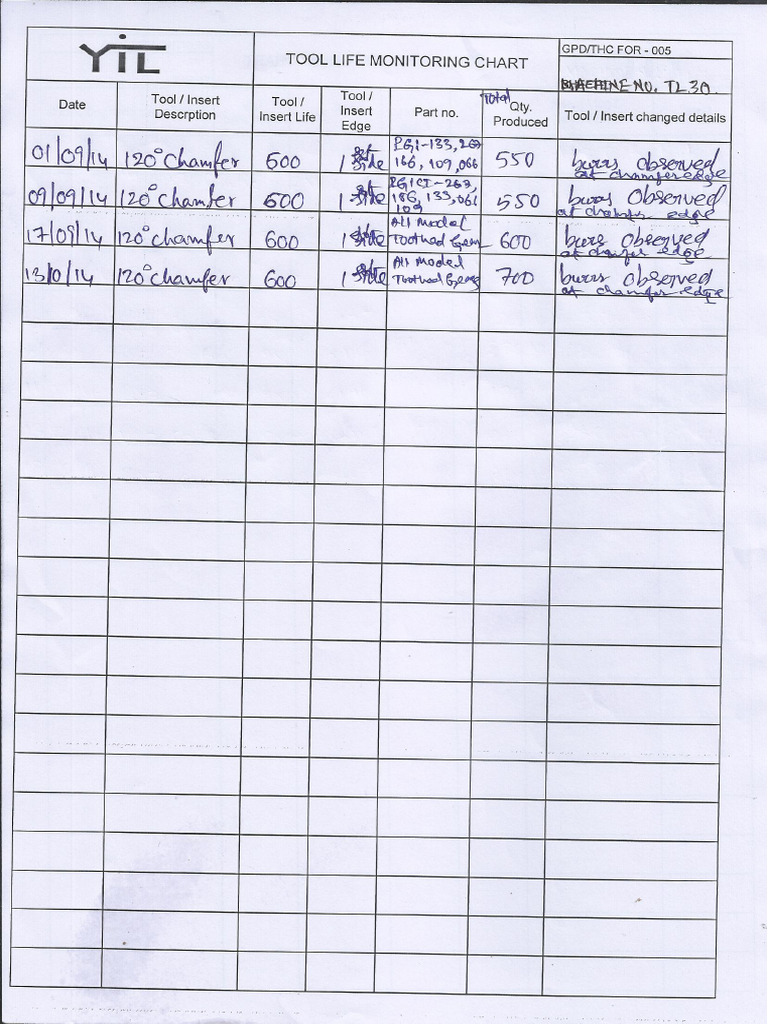 YTL
TOOL LIFE MONITORING CHART
GPD/THC FOR - 005
MACHINE NO. TL 30
Date
Tool / Insert
Descrption
Tool /
Insert Life
Tool /
Insert
Edge
Part no.
Total
Qty.
Produced
Tool / Insert changed details
01/09/14 120° Chamfer 600 1 side
133, 267
166, 109, 066
550 burrs observed
at chamfer edge
09/09/14 120° chamfer 600 1 side
267,
186, 133, 061
109
550 burrs Observed
at chamfer edge
17/09/14 120° chamfer 600 1 side
All Model
Toothed Gear
600 burrs Observed
at chamfer edge
13/0/14 120° chamfer 600 1 side
All Model
Toothed Gear
700 burrs observed
at chamfer edge